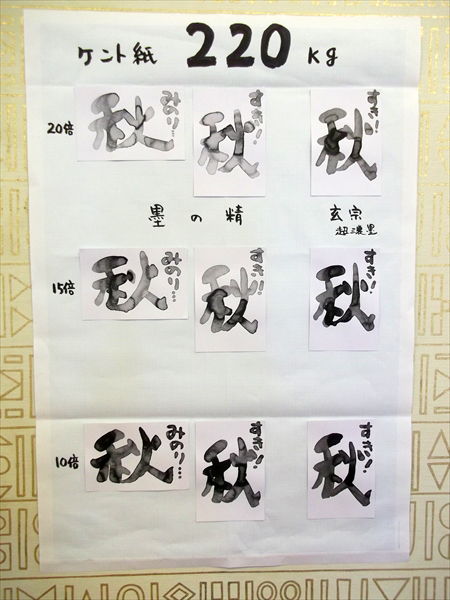 ケント紙 220 kg
20倍
秋 みのり…
秋 すき!
秋 すき!
墨の精
玄宗
超濃墨
15倍
秋 みのり…
秋 すき!
秋 すき!
10倍
秋 みのり…
秋 すき!
秋 すき!